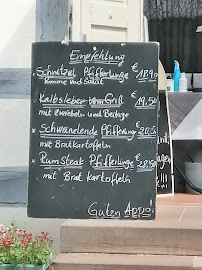 Empfehlung
Schnitzel Pfifferlinge € 18.90
Pomme und Salat
Kalbsleber vom Grill € 19,50
mit Zwiebeln und Beilage
Schweinelende Pfifferlinge € 20,5
mit Bratkartoffeln
Rumsteak Pfifferlinge € 28,5
mit Brat Kartoffeln
Guten Appo!